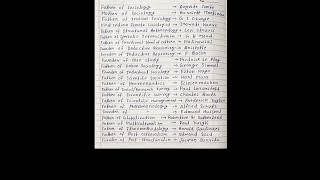 Father of Sociology → Auguste Comte
Father of Sociology → Harriet Martineau
Father of Indian Sociology → G S Ghurye
First Indian Female Sociologist → Irawati Karve
Father of Structural Anthropology → Levi Strauss
Father of Symbolic Interactionism → G H Mead
Father of Functional School of → Malinowski
Founder of Deductive Reasoning → Aristotle
Founder of Inductive Reasoning → F. Bacon
Founder of Case Study → Frederic Le Play
Father of Urban Sociology → George Simmel
Founder of Industrial Sociology → Elton Mayo
Father of Scientific Socialism → Karl Marx
Father of Hermeneutics → Schleiermacher
Father of Panel/Research Survey → Paul Lazarsfeld
Father of Scientific Survey → Charles Booth
Father of Scientific Management → Frederick Taylor
Father of Phenomenology → Alfred Schutz
→ Edmund Husserl
Father of Globalisation → Robertson &
Father of Multiculturalism → Paul
Father of Ethnomethodology → Harold Garfinkel
Father of Post colonialism → Edward Said
Founder of Post Structuralism → Jacques Derrida